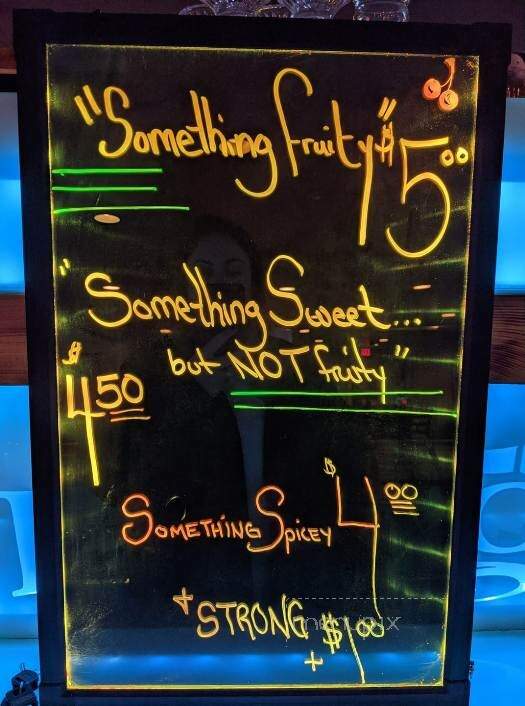 "Something fruity" $5.00
"Something Sweet...
but NOT fruity"
$4.50
SOMETHING SPICEY $4.00
+ STRONG + $1.00
menupix